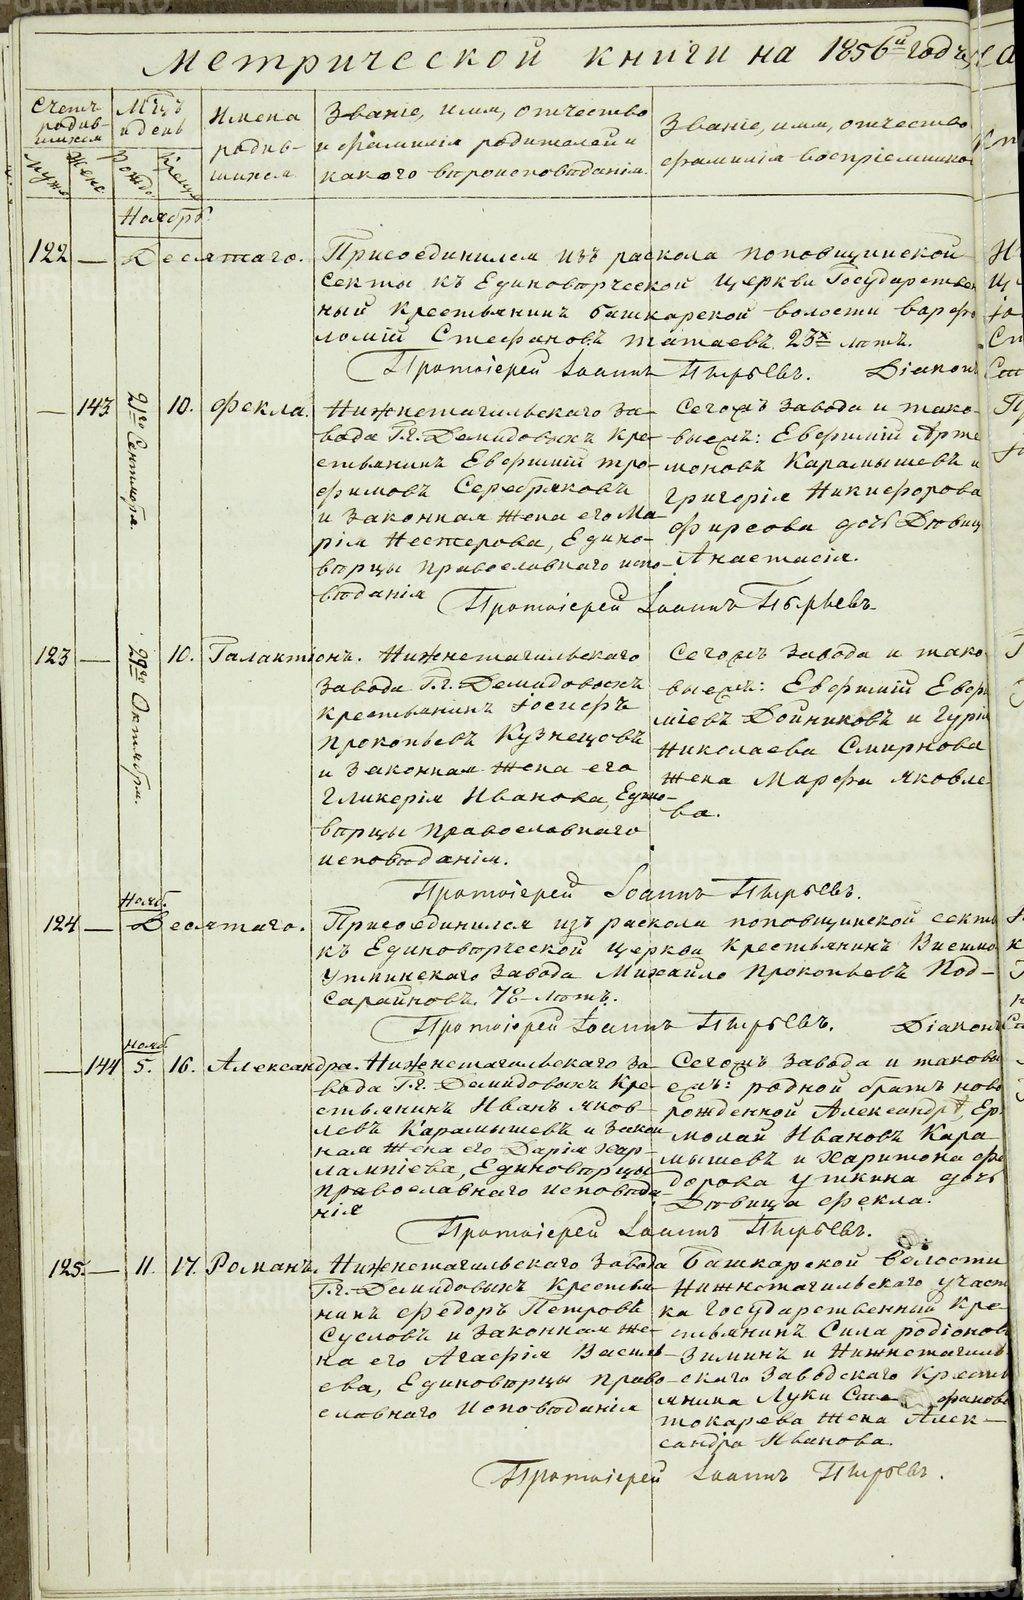 Метрической книги на 1856й годъ
Счетъ родив-шихся
Мцъ и день
Имена родив-шихся
Званіе, имя, отчество и фамилія родителей и какого вѣроисповѣданія
Званіе, имя, отчество фамилія воспріемников
Муж. Жен. Рожд. Крещ.
Ноябрь
122 — Десятаго. Присоединился изъ раскола поповщинской
секты къ Единовѣрческой церкви Государствен
ный крестьянинъ Башкарской волости Варфо
ломій Стефановъ Татаевъ 23х лѣтъ.
Протоіерей Іоаннъ Пырьевъ. Діаконъ
— 143 21го Сентября. 10. Фекла.
Нижнетагильскаго за-
вода Г.г. Демидовыхъ кре-
стьянинъ Евфимій Тро-
фимовъ Серебряковъ
и законная жена его Ма
рія Нестерова, Едино-
вѣрцы православнаго испо-
вѣданія
Сегожъ завода и тако-
выежъ: Евфимій Арте
моновъ Карамышевъ и
Григорія Никифорова
Фирсова дочь Дѣвиц
Анастасія.
Протоіерей Іоаннъ Пырьевъ
123 — 29го Октября. 10. Галактіонъ.
Нижнетагильскаго
завода Г.г. Демидовыхъ
крестьянинъ Іосифъ
Прокопьевъ Кузнецовъ
и законная жена его
Гликерія Иванова, Едино-
вѣрцы православнаго
исповѣданія.
Сегожъ завода и тако
выежъ: Евфимій Евфи
міевъ Дойниковъ и Гурія
Николаева Смирнова
жена Марфа Яковле
ва.
Протоіерей Іоаннъ Пырьевъ.
Нояб.
124 — Десятаго. Присоединился изъ раскола поповщинской секты
къ Единовѣрческой церкви крестьянинъ Висимо
Уткинскаго завода Михайло Прокопьевъ Под-
сарайновъ. 78 лѣтъ.
Протоіерей Іоаннъ Пырьевъ. Діаконъ
Нояб
— 144 5. 16. Александра.
Нижнетагильскаго за
вода Г.г. Демидовыхъ кре-
стьянинъ Иванъ Яков-
левъ Карамышевъ и закон
ная жена его Дарія Хар-
лампіева, Единовѣрцы
православнаго исповѣда-
нія
Сегожъ завода и таковы
ежъ: родной братъ ново
рожденной Александры, Ер
молай Ивановъ Кара
мышевъ и Харитона Фе
дорова Уткина дочь
Дѣвица Фекла.
Протоіерей Іоаннъ Пырьевъ.
125. — 11. 17. Романъ.
Нижнетагильскаго завода
Г.г. Демидовыхъ крестья
нинъ Федоръ Петровъ
Сусловъ и законная же-
на его Агафія Василь-
ева, Единовѣрцы право-
славнаго исповѣданія
Башкарской волости
Нижнетагильскаго участ
ка Государственный кре
стьянинъ Сила Родіоновъ
Зиминъ и Нижнетагиль
скаго заводскаго кресть
янина Луки Сте фанова
Токарева жена Алек-
сандра Иванова.
Протоіерей Іоаннъ Пырьевъ.
METRIKI.GASO-URAL.RU